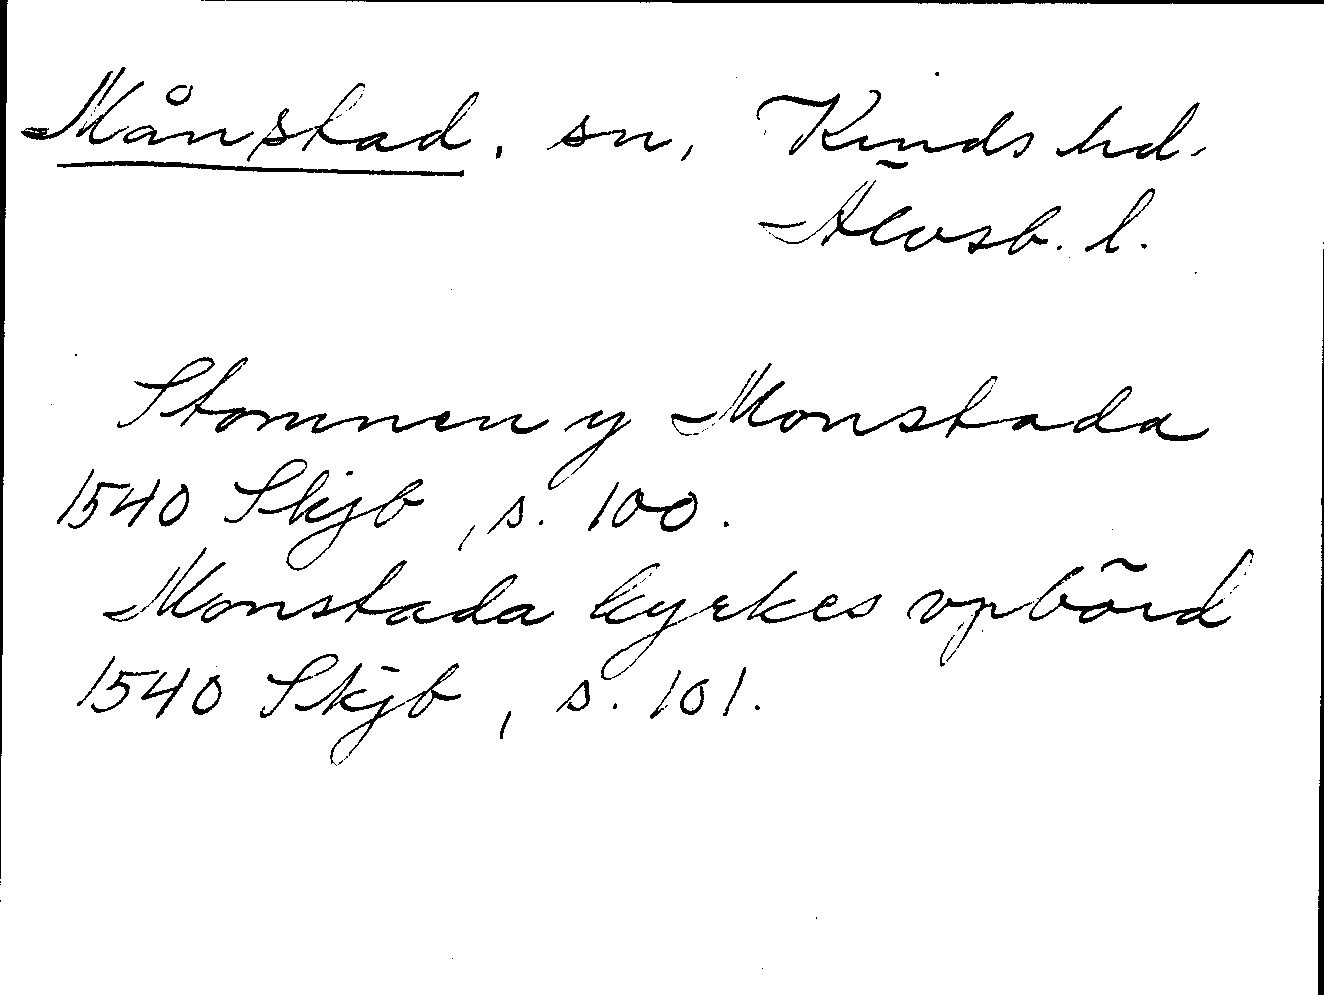 Månstad, sn, Kinds hd.
Älvsb. l.
Stommen y Monstada
1540 Skjb, s. 100.
Monstada kyrkes vpbörd
1540 Skjb, s. 101.